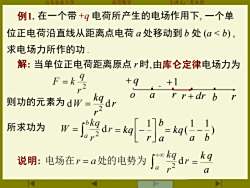 例1. 在一个带 +q 电荷所产生的电场作用下, 一个单
位正电荷沿直线从距离点电荷 a 处移动到 b 处 (a < b) ,
求电场力所作的功 .
解: 当单位正电荷距离原点 r 时,由库仑定律电场力为
F = k q/r²
+q +1
o a r r + dr b r
则功的元素为 dW = kq/r² dr
所求功为 W = ∫_a^b kq/r² dr = kq[-1/r]_a^b = kq(1/a - 1/b)
说明: 电场在 r = a 处的电势为 ∫_a^{+∞} kq/r² dr = kq/a